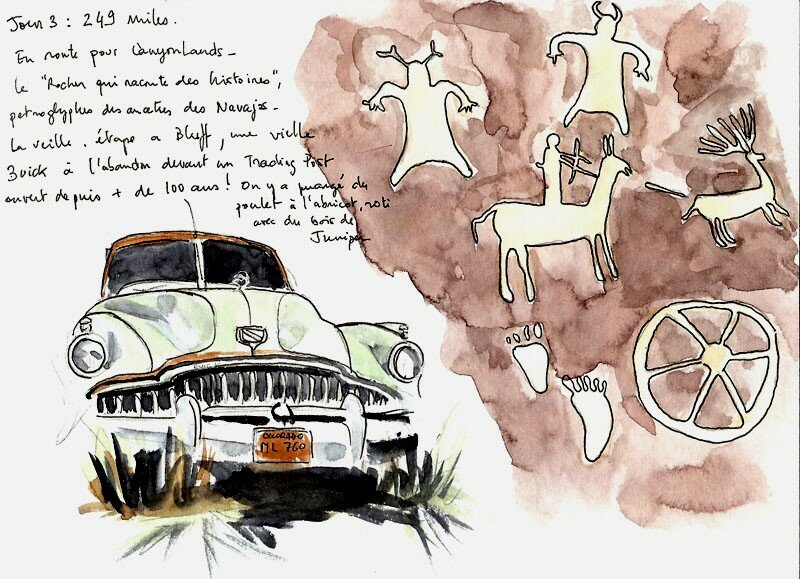 Jour 3 : 249 miles.
En route pour Canyonlands -
Le "Rocher qui raconte des histoires",
petroglyphes des ancetres des Navajos -
La veille, étape a Bluff, une vieille
Buick à l'abandon devant un Trading Post
ouvert depuis + de 100 ans ! On y a mangé du
poulet à l'abricot, roti
avec du bois de
Juniper
COLORADO
ML 760